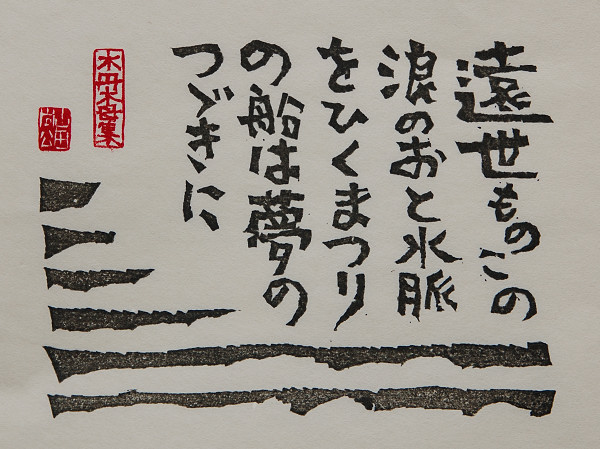 遠世ものこの
浪のおと水脈
をひくまつり
の船は夢の
つづきに